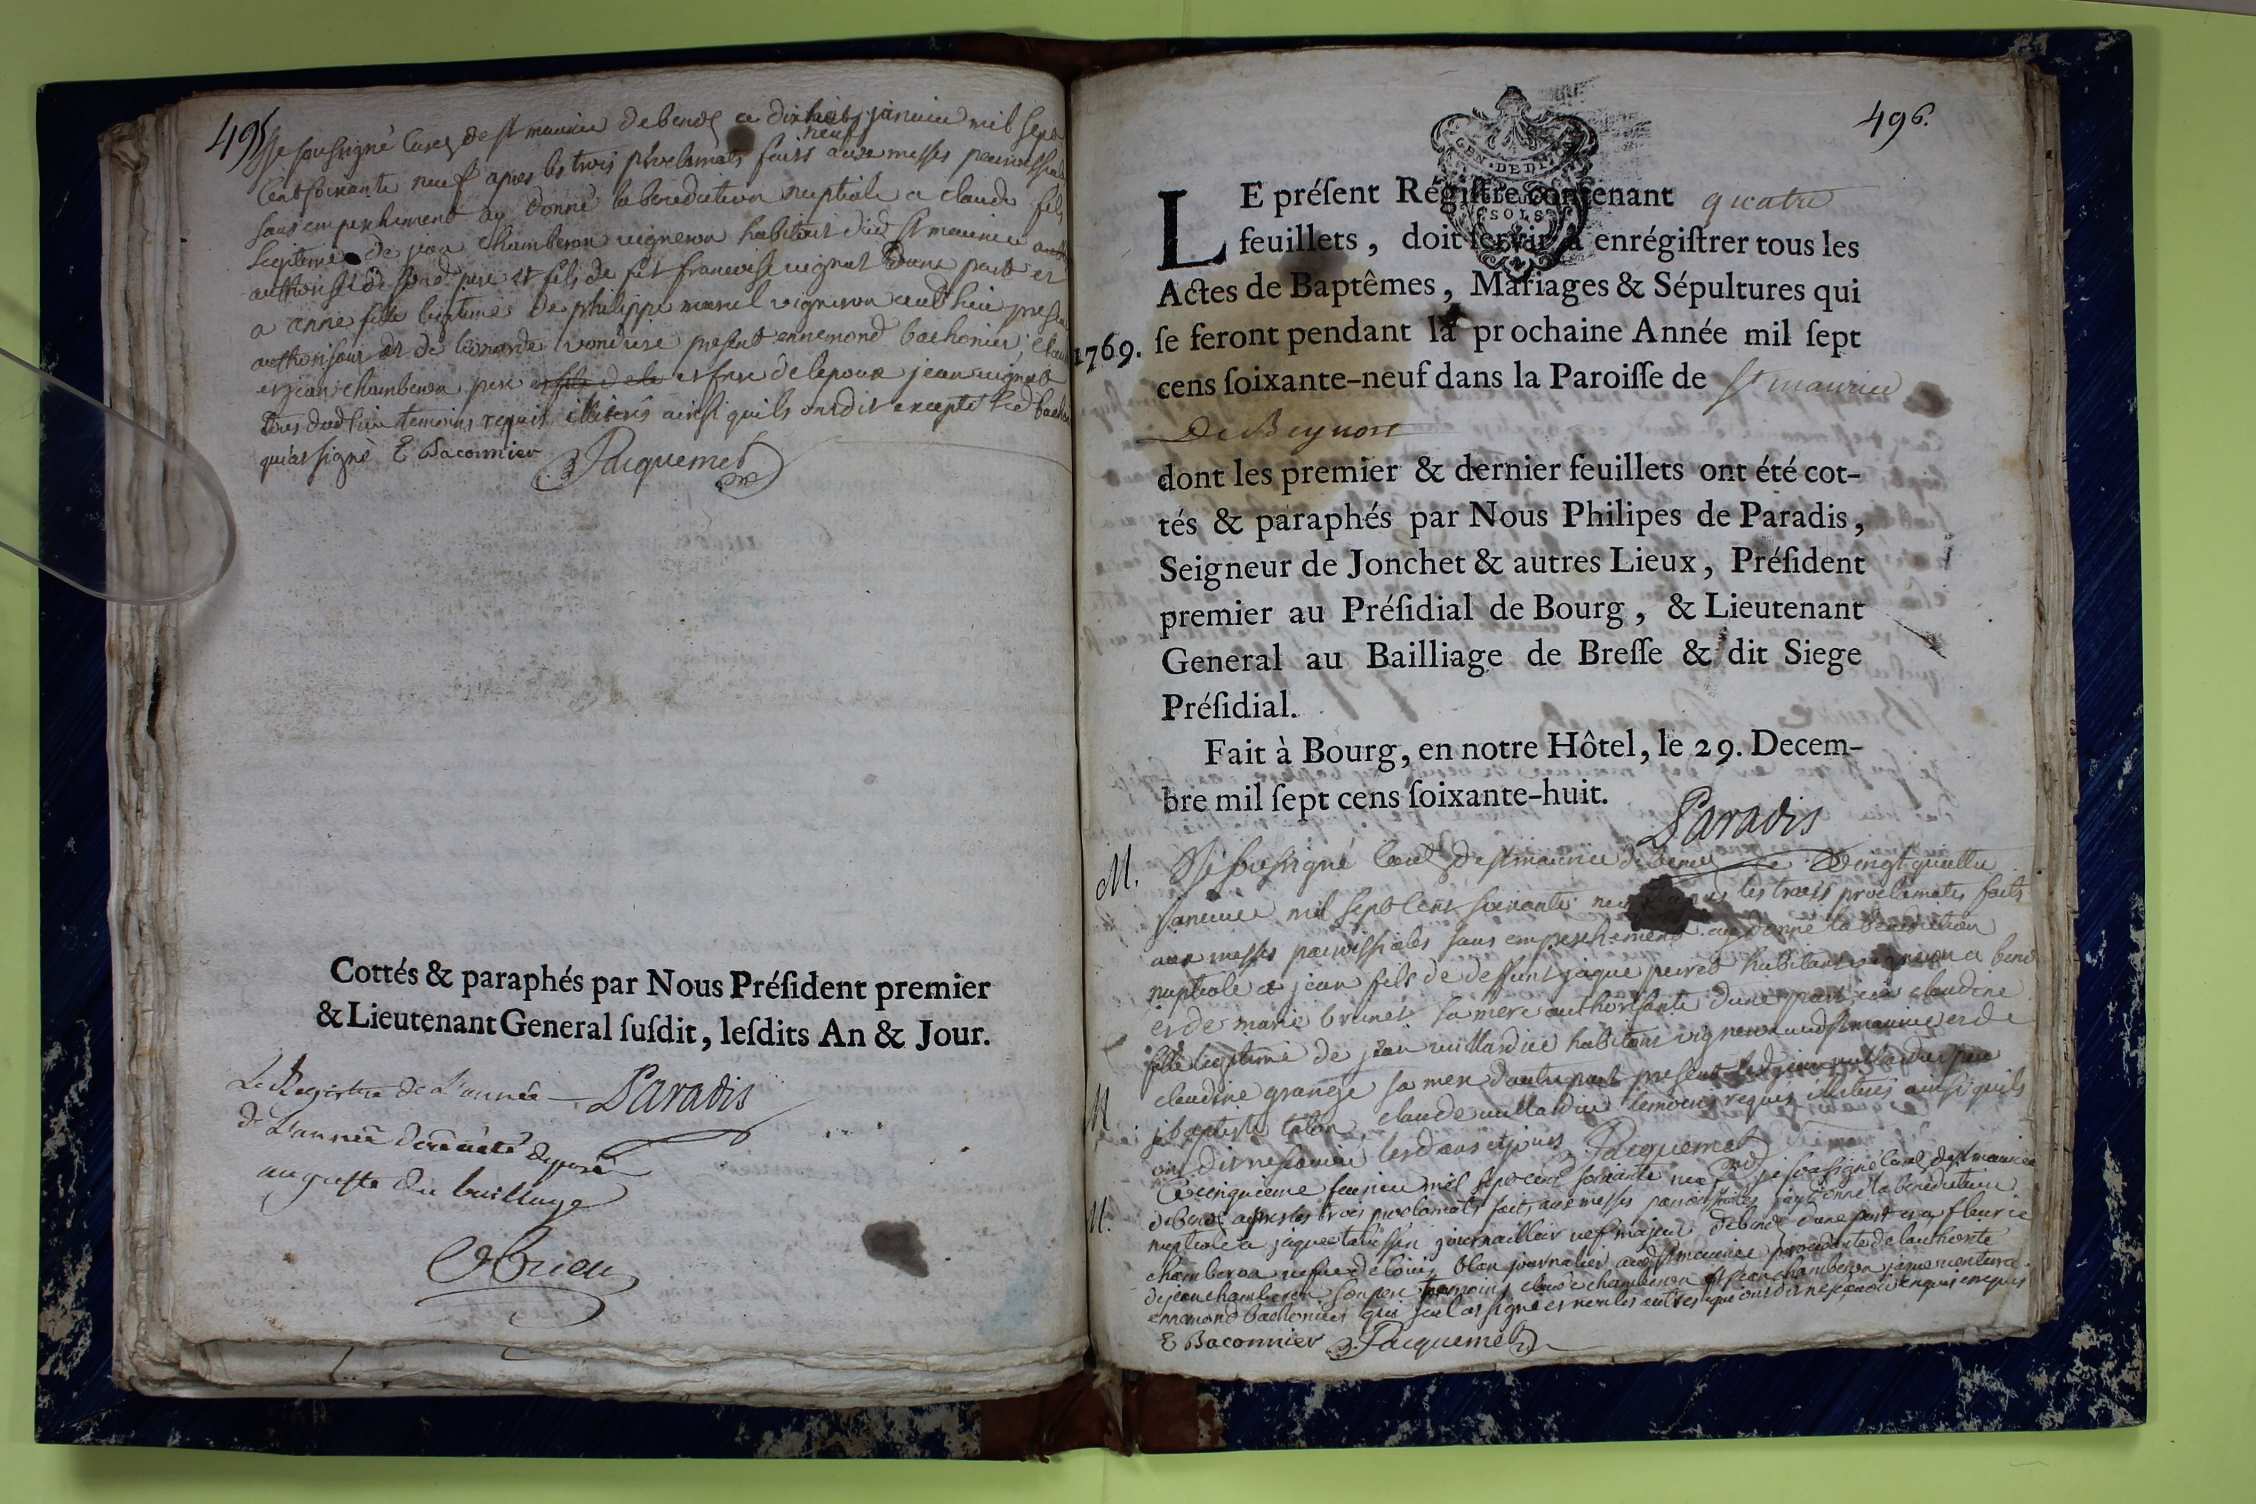 495
Je soussigné Curé de st maurice debenoz ce dixhuit janvier mil sept
neuf
Cent soixante neuf apres les trois proclamats faits aux messes paroissiales
sans empeschement ay donné la benediction nuptiale a claude fils
legitime de jean chamberon vigneron habitant dud st maurice
authorisé de sond pere et fils de fut francoise vignat d'une part et
a anne fille legitime de philippe morel vigneron aud lieu present
authorisant et de leonarde present ennemond bachonier, claude
et jean chamberon pere et frere de lepoux jean vignat
tous dud lieu temoins requis illiterés ainsi quils ont dit excepté led bachon
qui a signé E Baconnier Jacquemet
Cottés & paraphés par Nous Préſident premier
& Lieutenant General ſuſdit, leſdits An & Jour.
Le Registre de L'année Paradis
de L'année été deposé
au greffe du bailliage
496.
GEN. DE DI
SOLS
LE préſent Régiſtre contenant quatre
feuillets, doit ſervir à enrégiſtrer tous les
Actes de Baptêmes, Mariages & Sépultures qui
ſe feront pendant la prochaine Année mil ſept
1769.
cens ſoixante-neuf dans la Paroiſſe de St maurice
De Beynost
dont les premier & dernier feuillets ont été cot-
tés & paraphés par Nous Philipes de Paradis,
Seigneur de Jonchet & autres Lieux, Préſident
premier au Préſidial de Bourg, & Lieutenant
General au Bailliage de Breſſe & dit Siege
Préſidial.
Fait à Bourg, en notre Hôtel, le 29. Decem-
bre mil ſept cens ſoixante-huit.
Paradis
M. Je soussigné Curé de st maurice de benoz ce vingt quatre
Janvier mil sept cent soixante neuf apres les trois proclamats faits
aux messes paroissiales sans empeschement ay donné la benediction
nuptiale a jean fils de deffunt jaque peiret habitant vigneron a benoz
et de marie brunet sa mere authorisante d'une part et a claudine
fille legitime de jean habitant vigneron aud st maurice et de
claudine grange sa mere d'autre part present led jean pere
j baptiste talon claude temoins requis illiterés ainsi quils
ont dit ne scavoir les d ans et jours Jacquemet
M
M. Ce cinquieme fevrier mil sept cent soixante neuf je soussigné Curé de st maurice
debenoz apres les trois proclamats faits aux messes paroissiales jay donné la benediction
nuptiale a jaque journaillier vef majeur debenoz d'une part et a fleurie
chamberon vefve de louis blan journalier aud st maurice procedante de lauthorité
de jean chamberon son pere temoins claude chamberon et jean chamberon
ennemond bachonier qui seul a signé et non les autres que ont dit ne scavoir enquis et requis
E Baconnier Jacquemet